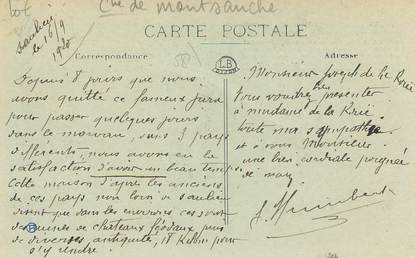 Cne de Montsauche
Saulieu
le 16/9
1920
CARTE POSTALE
Correspondance
Adresse
LB
DIJON
Depuis 8 jours que nous
avons quitté ce fameux Jura
pour passer quelques jours
dans le morvan, sous 3 pays
différents, nous avons eu la
satisfaction d'avoir un beau temps.
Cette maison d'après les anciens
de ces pays non loin de saulieu
disent que dans les environs ces sont
des ruines de châteaux féodaux puis
de diverses antiquités, 18 Kilom pour
s'y rendre.
Monsieur Joseph de la
Vous voudrez présenter
à madame de la
toute ma sympathie
et à vous Monsieur
une bien cordiale poignée
de main